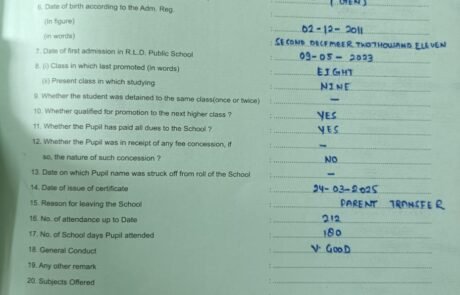 6. Date of birth according to the Adm. Reg. (GEN)
(in figure) : 02-12-2011
(in words) : SECOND DECEMBER TWO THOUSAND ELEVEN
7. Date of first admission in R.L.D. Public School : 09-05-2023
8. (i) Class in which last promoted (in words) : EIGHT
(ii) Present class in which studying : NINE
9. Whether the student was detained to the same class(once or twice) : —
10. Whether qualified for promotion to the next higher class ? : YES
11. Whether the Pupil has paid all dues to the School ? : YES
12. Whether the Pupil was in receipt of any fee concession, if : —
so, the nature of such concession ? : NO
13. Date on which Pupil name was struck off from roll of the School : —
14. Date of issue of certificate : 24-03-2025
15. Reason for leaving the School : PARENT TRANSFER
16. No. of attendance up to Date : 212
17. No. of School days Pupil attended : 180
18. General Conduct : V. GOOD
19. Any other remark :
20. Subjects Offered :